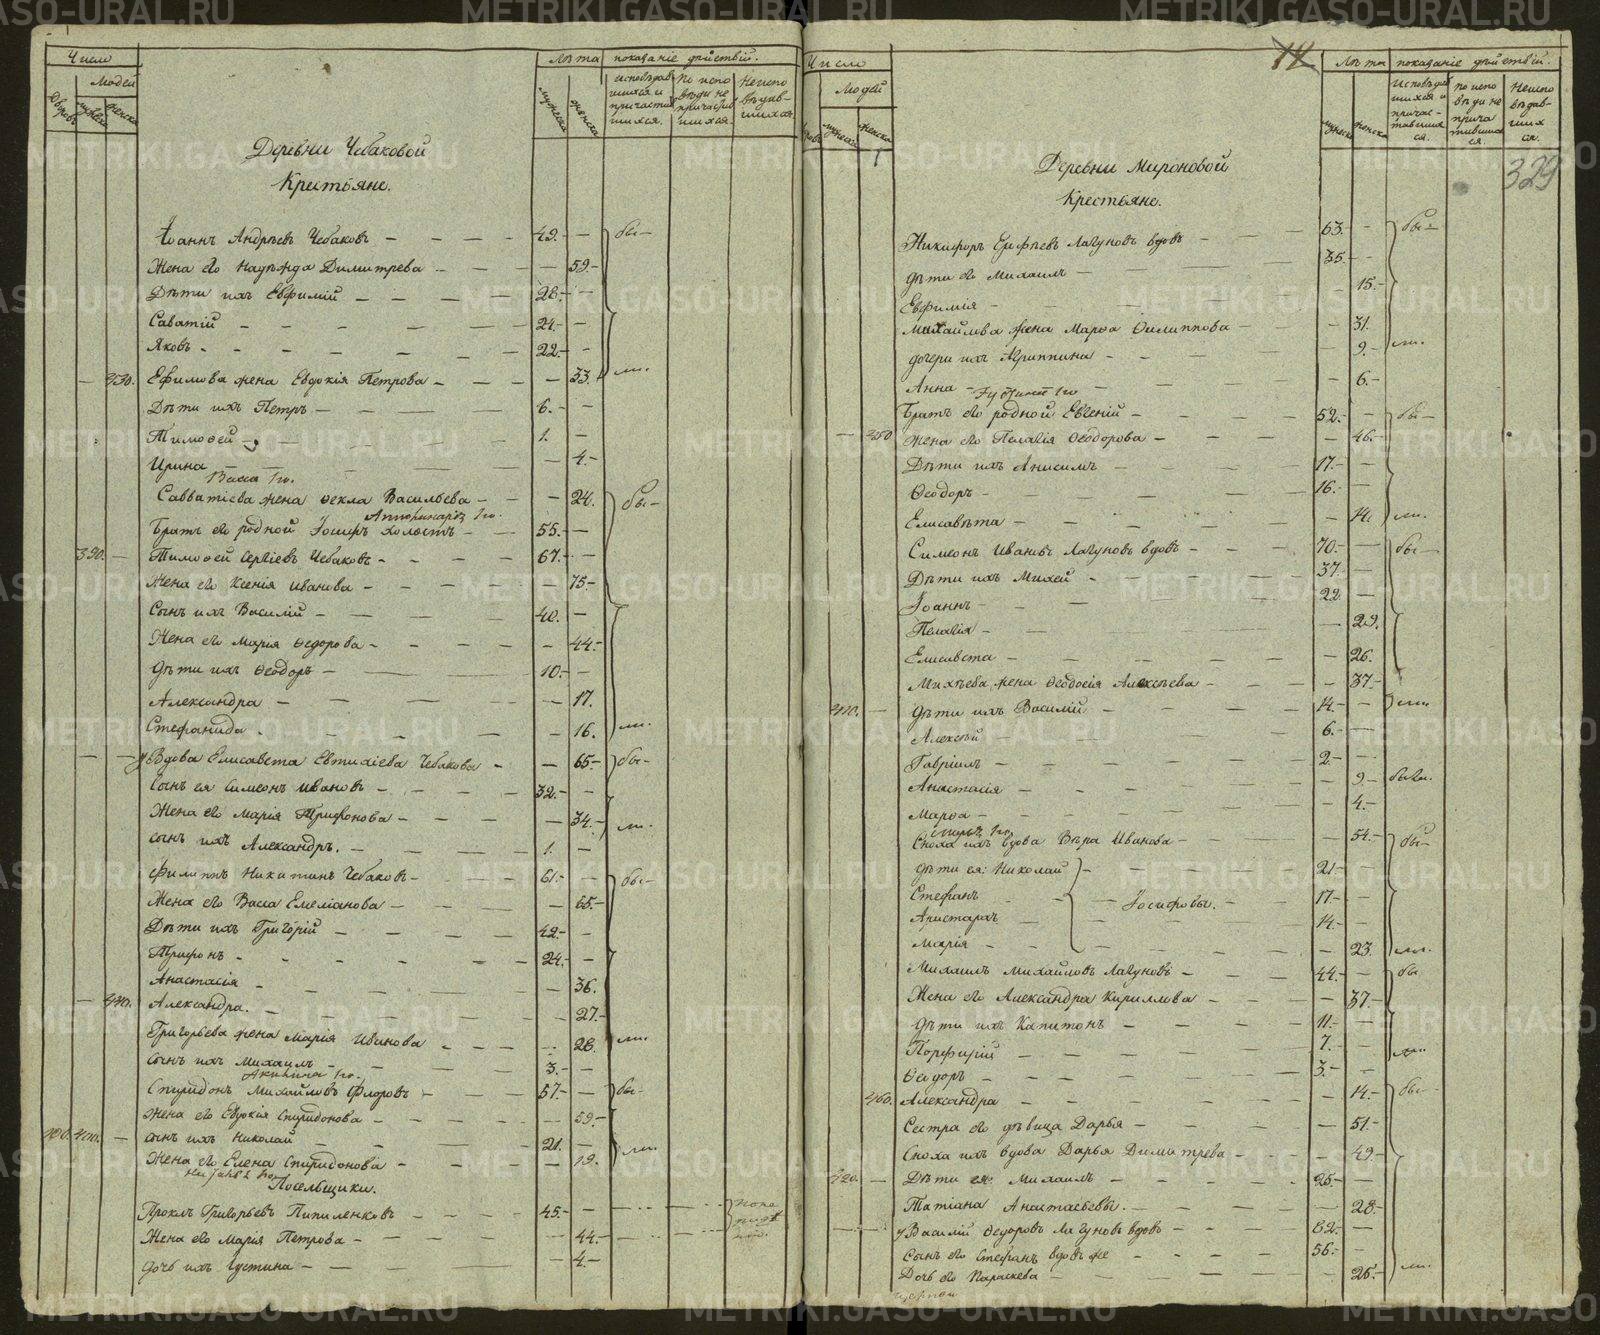 Число
Людей
Дворовъ
мужеска
женска
Лѣта
показаніе дѣйствій.
мужеска
женска
исповѣдав-
шихся и
причастив-
шихся.
по испо
вѣди не
причастив
шихся.
Неиспо
вѣдав-
шихся
Деревни Чебаковой
Крестьяне.
Іоаннъ Андреевъ Чебаковъ 49. бы-
Жена его Надѣжда Димитрева 59.
Дѣти ихъ Евфимій 28.
Саватій 24.
Яковъ 22.
Ефимова жена Евдокія Петрова 33. ли.
Дѣти ихъ Петръ 6.
Тимоѳей 1.
Ирина 4.
Васса
Савватіева жена Ѳекла Васильева 24. бы-
Братъ его родной Іосифъ холостъ 55.
390. Тимоѳей Сергіевъ Чебаковъ 67.
Жена его Ксенія Иванова 75.
Сынъ ихъ Василій 40.
Жена его Марія Ѳедорова 44.
Дѣти ихъ Ѳеодоръ 10.
Александра 17.
Стефанида 16. ли.
Вдова Елисавета Евтихіева Чебакова 65. бы-
Сынъ ея Симеонъ Ивановъ 32.
Жена его Марія Трифонова 34. ли.
сынъ ихъ Александръ. 1.
Филиппъ Никитинъ Чебаковъ 61. бы-
Жена его Васса Емеліанова 65.
Дѣти ихъ Григорій 42.
Трифонъ 24.
Анастасія 36.
Александра. 27.
Григорьева жена Марія Иванова 28. ли.
сынъ ихъ Михаилъ 3.
Спиридонъ Михайловъ Фларовъ 57. бы-
Жена его Евдокія Спиридонова 59.
400. сынъ ихъ Николай 21.
Жена его Елена Спиридонова 19. ли.
Посельщики.
Проклъ Григорьевъ Пипиленковъ 45.
Жена его Марія Петрова 44.
дочь ихъ Густина 4.
Число
Людей
мужеска
женска
14
Лѣта
показаніе дѣйствій.
мужеска
женска
Исповѣдав
шихся и
причас-
тившихся
по испо
вѣди не
прича
тившихся
Неиспо
вѣдав-
шихся.
329
Деревни Мироновой
Крестьяне.
Никифоръ Ерефѣевъ Лагуновъ вдовъ 63. бы-
дѣти его Михаилъ 35.
Евфимія 15.
Михайлова жена Марѳа Филиппова 31.
дочери ихъ Агриппина 9. ли.
Анна 6.
Братъ его родной Евгеній 52. бы-
350 Жена его Пелагія Ѳеодорова 46.
Дѣти ихъ Анисимъ 17.
Ѳеодоръ 16.
Елисавѣта 14. ли.
Симеонъ Ивановъ Лагуновъ вдовъ 70. бы-
Дѣти ихъ Михей 37.
Іоаннъ 22.
Пелагія 29.
Елисавета 26.
Михѣева жена Ѳеодосія Алексѣева 37.
410. дѣти ихъ Василій 14. ли.
Алексѣй 6.
Гавріилъ 2.
Анастасія 9. были.
Марѳа 4.
Сноха ихъ вдова Вѣра Иванова 54. бы-
дѣти ея: Николай 21.
Стефанъ 17. Іосифовы.
Аристархъ 14.
Марія 23. ли.
Михаилъ Михайловъ Лагуновъ 44. бы
Жена его Александра Кириллова 37.
дѣти ихъ Капитонъ 11.
Порфирій 7. ли.
Ѳеодоръ 3.
360. Александра 14. бы-
Сестра его дѣвица Дарья 51.
Сноха ихъ вдова Дарья Димитрева 49.
420. Дѣти ея: Михаилъ 25.
Татіана Анастасьевы. 28.
Василій Ѳедоровъ Лагуновъ вдовъ 82.
Сынъ его Стефанъ вдовъ же 56.
Дочь его Параскева 25. ли.
METRIKI.GASO-URAL.RU